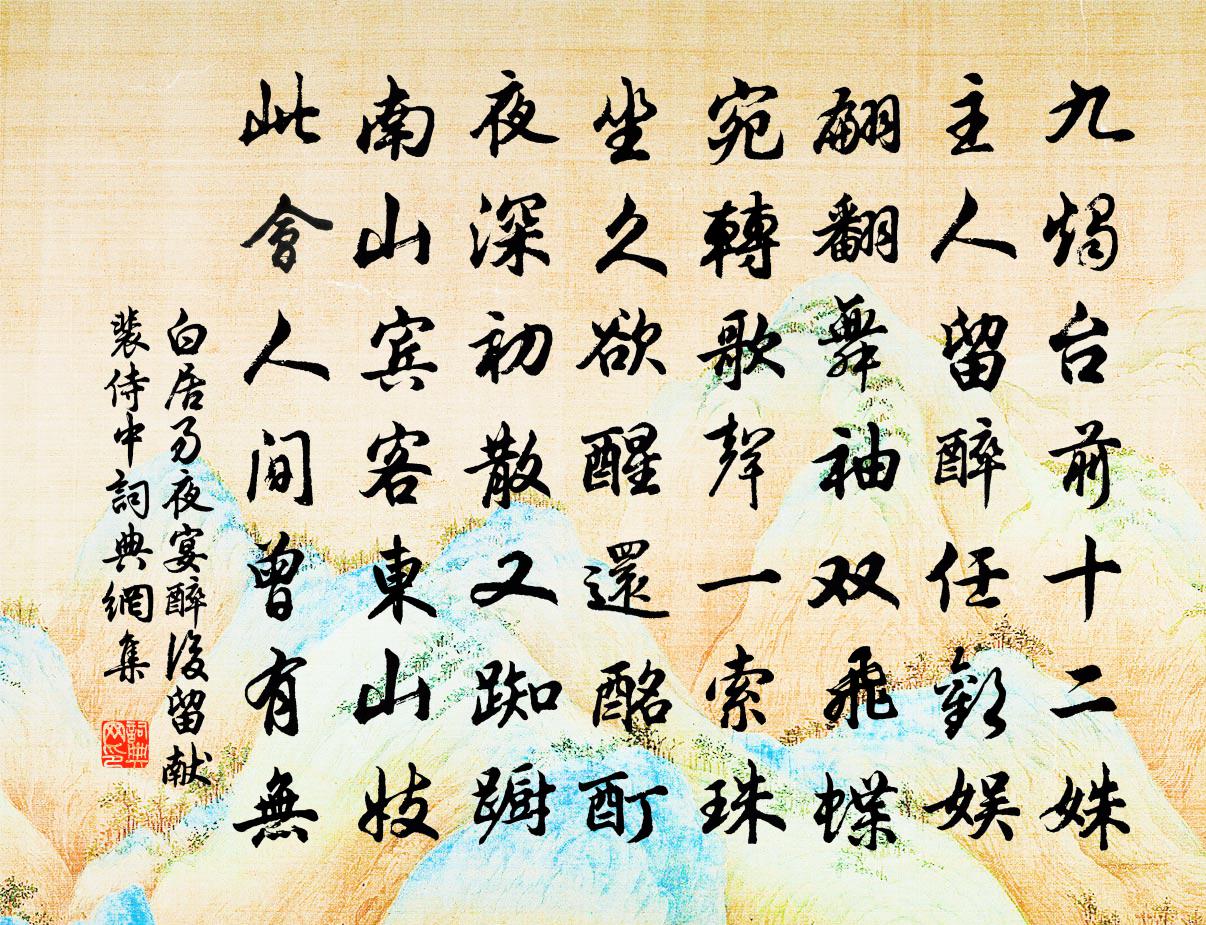 九燭台前十二姝
主人留醉任歓娯
翩翻舞袖双飛蝶
宛轉歌聲一索珠
坐久欲醒還酩酊
夜深初散又踟躕
南山賓客東山妓
此會人间曾有無
白居易夜宴醉後留献
裴侍中詞典網集
詞典网印